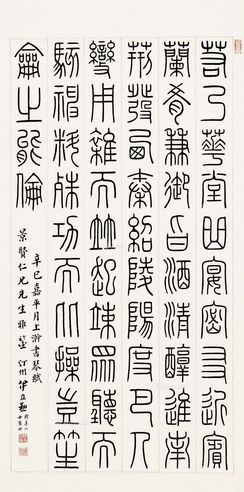 若乃華堂曲宴密友近賓
蘭肴兼御旨酒清醇進南
荊發西秦紹陵陽度巴人
變用雜而並起竦眾聽而
駭神料殊功而比操豈笙
籥之能倫
辛巳嘉平月上澣書琴賦
景賢仁兄先生雅鑒 汀州伊立勳